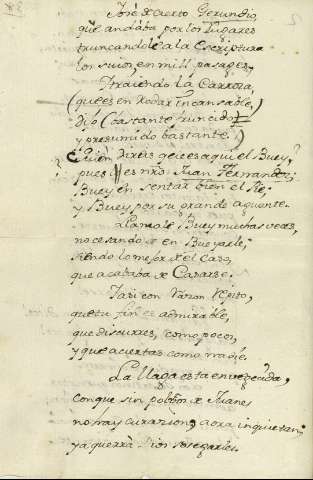 José de cierto Gerundio,
que andaba por los lugares
truncandole a la Escriptura
los suios, en mill pasages,
Traiendo la Carroza,
(que es en Rodar Incansable,)
dijo (bastante fruncido
y presumido bastante.)
Quien dirias qe. es aqui el Buey,?
pues es nro. Juan Fernandez;
Buey en sentar bien el Pie,
y Buey por su grande aguante.
Llamale Buey muchas veces,
no cesando de en Bueyarle,
siendo lo mejor del caso,
que acababa de Casarse.
Fabi con razon repito,
que tu fin es admirable,
que discurres, como pocos,
y que aciertas como nadie.
La llaga esta envegecida,
conque sin polbos de Juanes
no hay curazion; aora inquietan;
ya querrà Dios sosegarles.